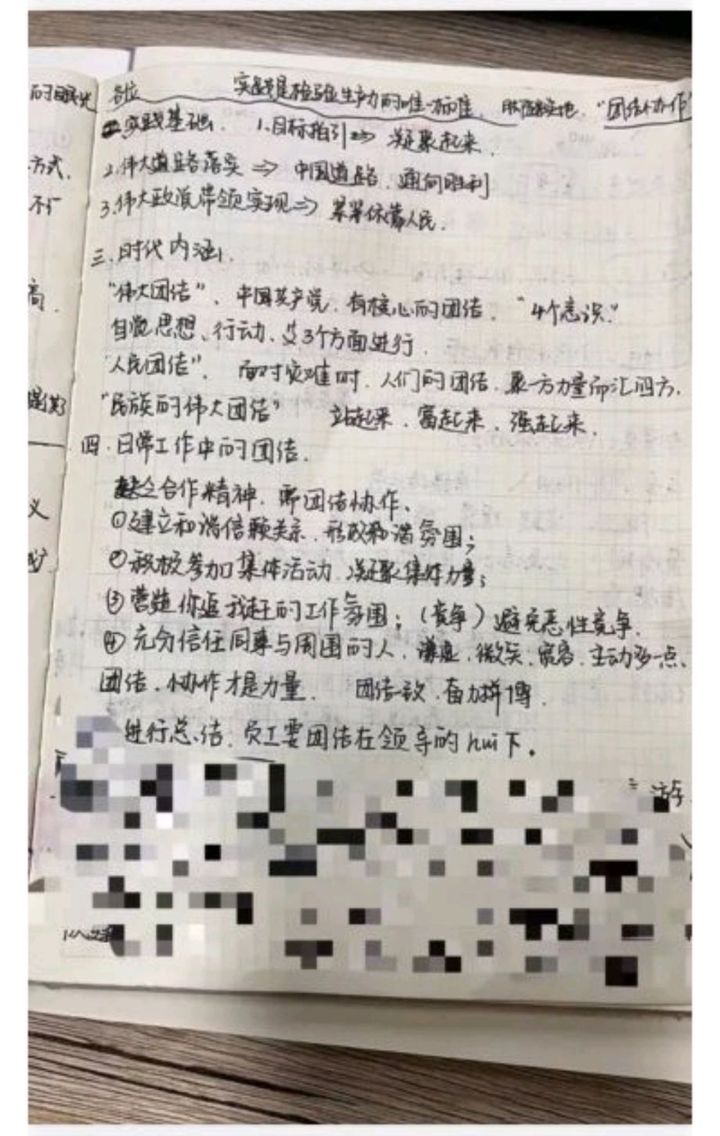 的眼光
方式.
不
高.
义
各位 实践是检验生产力的唯一标准. 脚踏实地. "团结协作"
二.实践基础. 1.目标指引⇒ 凝聚起来.
2.伟大道路落实 ⇒ 中国道路.通向胜利
3.伟大政党带领实现⇒ 紧紧依靠人民.
三.时代内涵.
"伟大团结". 中国共产党.有核心的团结. "4个意识."
自觉思想、行动、这3个方面进行.
"人民团结". 面对灾难时.人们的团结.聚一方力量而汇四方.
"民族的伟大团结" 站起来.富起来.强起来.
四.日常工作中的团结.
合作精神.需团结协作.
①建立和谐信赖关系.形成和谐氛围;
②积极参加集体活动.凝聚集体力量;
③营造你追我赶的工作氛围;(竞争)避免恶性竞争.
④充分信任同事与周围的人.谦虚.微笑.宽容.主动多一点.
团结.协作才是力量. 团结一致.奋力拼搏.
进行总结.员工要团结在领导的hui下。